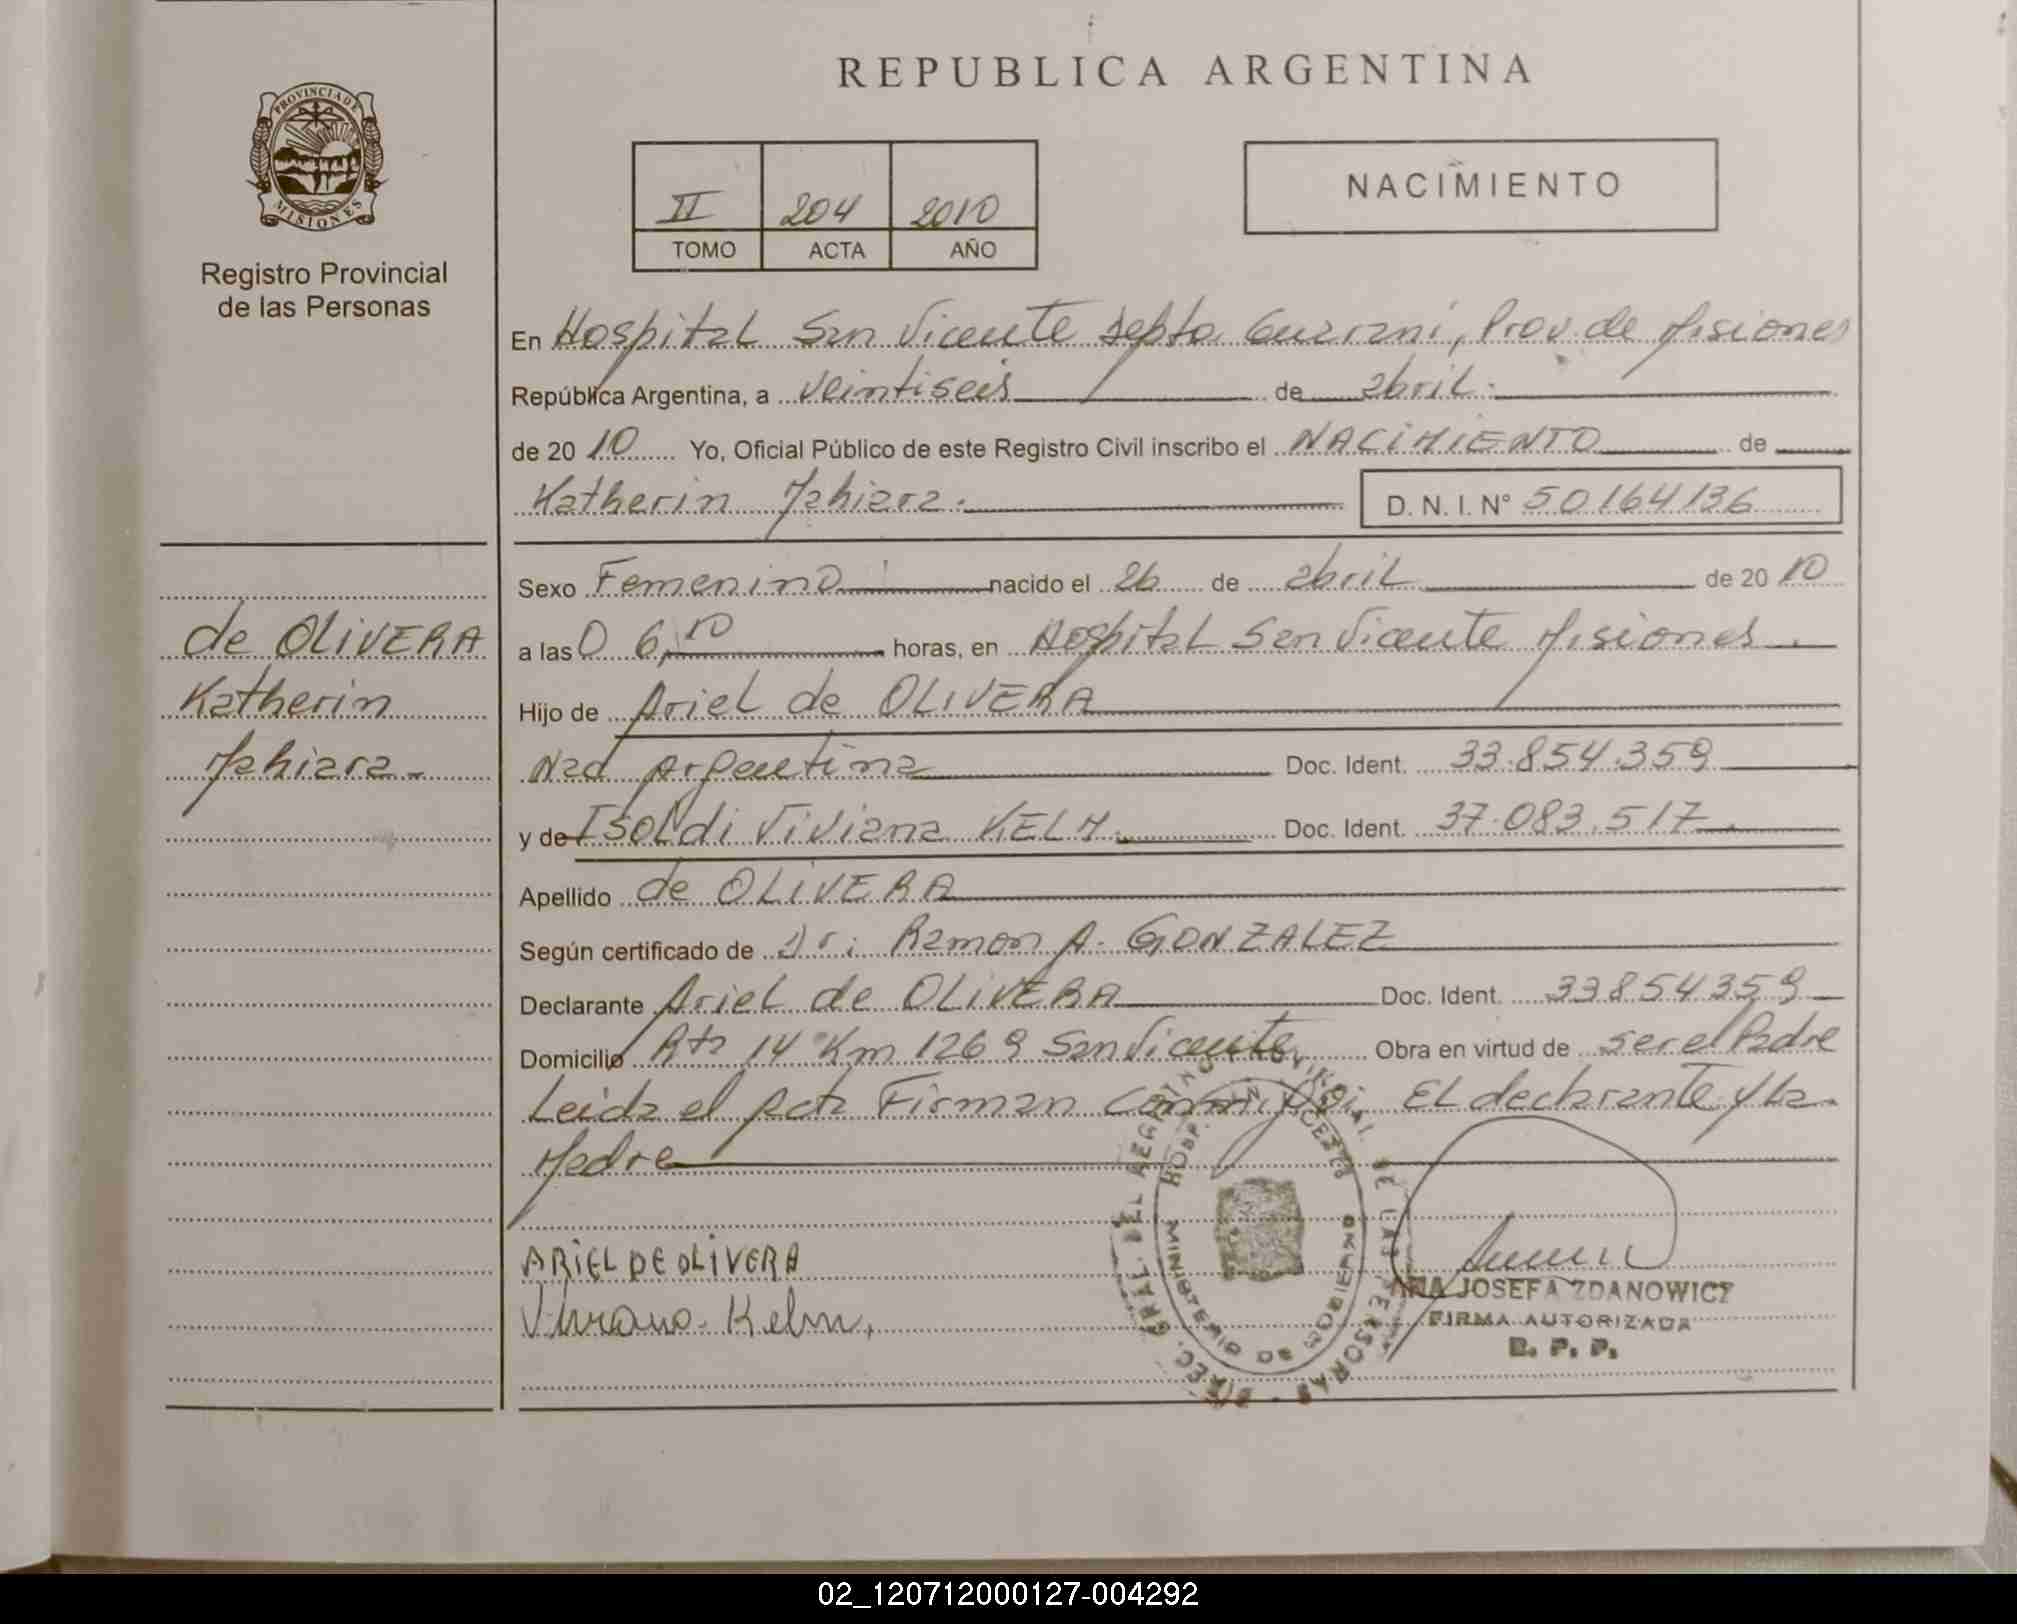 REPUBLICA ARGENTINA
PROVINCIA DE
MISIONES
Registro Provincial
de las Personas
II 204 2010
TOMO ACTA AÑO
NACIMIENTO
En Hospital San Vicente Depto Guarani, Prov. de Misiones
República Argentina, a veintiseis de abril.
de 2010 Yo, Oficial Público de este Registro Civil inscribo el NACIMIENTO de
Katherin Mahiara. D. N. I. N° 50164136
de OLIVERA
Katherin
Mahiara.
Sexo Femenino nacido el 26 de abril de 2010
a las 0 6,10 horas, en Hospital San Vicente Misiones.
Hijo de Ariel de OLIVERA
Nad Argentina Doc. Ident. 33.854.359
y de Isoldi Viviana KELM. Doc. Ident. 37.083.517.
Apellido de OLIVERA
Según certificado de Dr: Ramon A. GONZALEZ
Declarante Ariel de OLIVERA Doc. Ident. 33854359
Domicilio Rta 14 Km 1269 San Vicente, Obra en virtud de ser el Padre
Leida el Acta Firman El declarante y La
Madre
ARIEL DE OLIVERA
Viviana. Kelm.
DIREC. GRAL. DEL REGISTRO PROVINCIAL DE LAS PERSONAS
HOSP. SAN VICENTE
MINISTERIO DE GOBIERNO
ANA JOSEFA ZDANOWICZ
FIRMA AUTORIZADA
R. P. P.
02_120712000127-004292